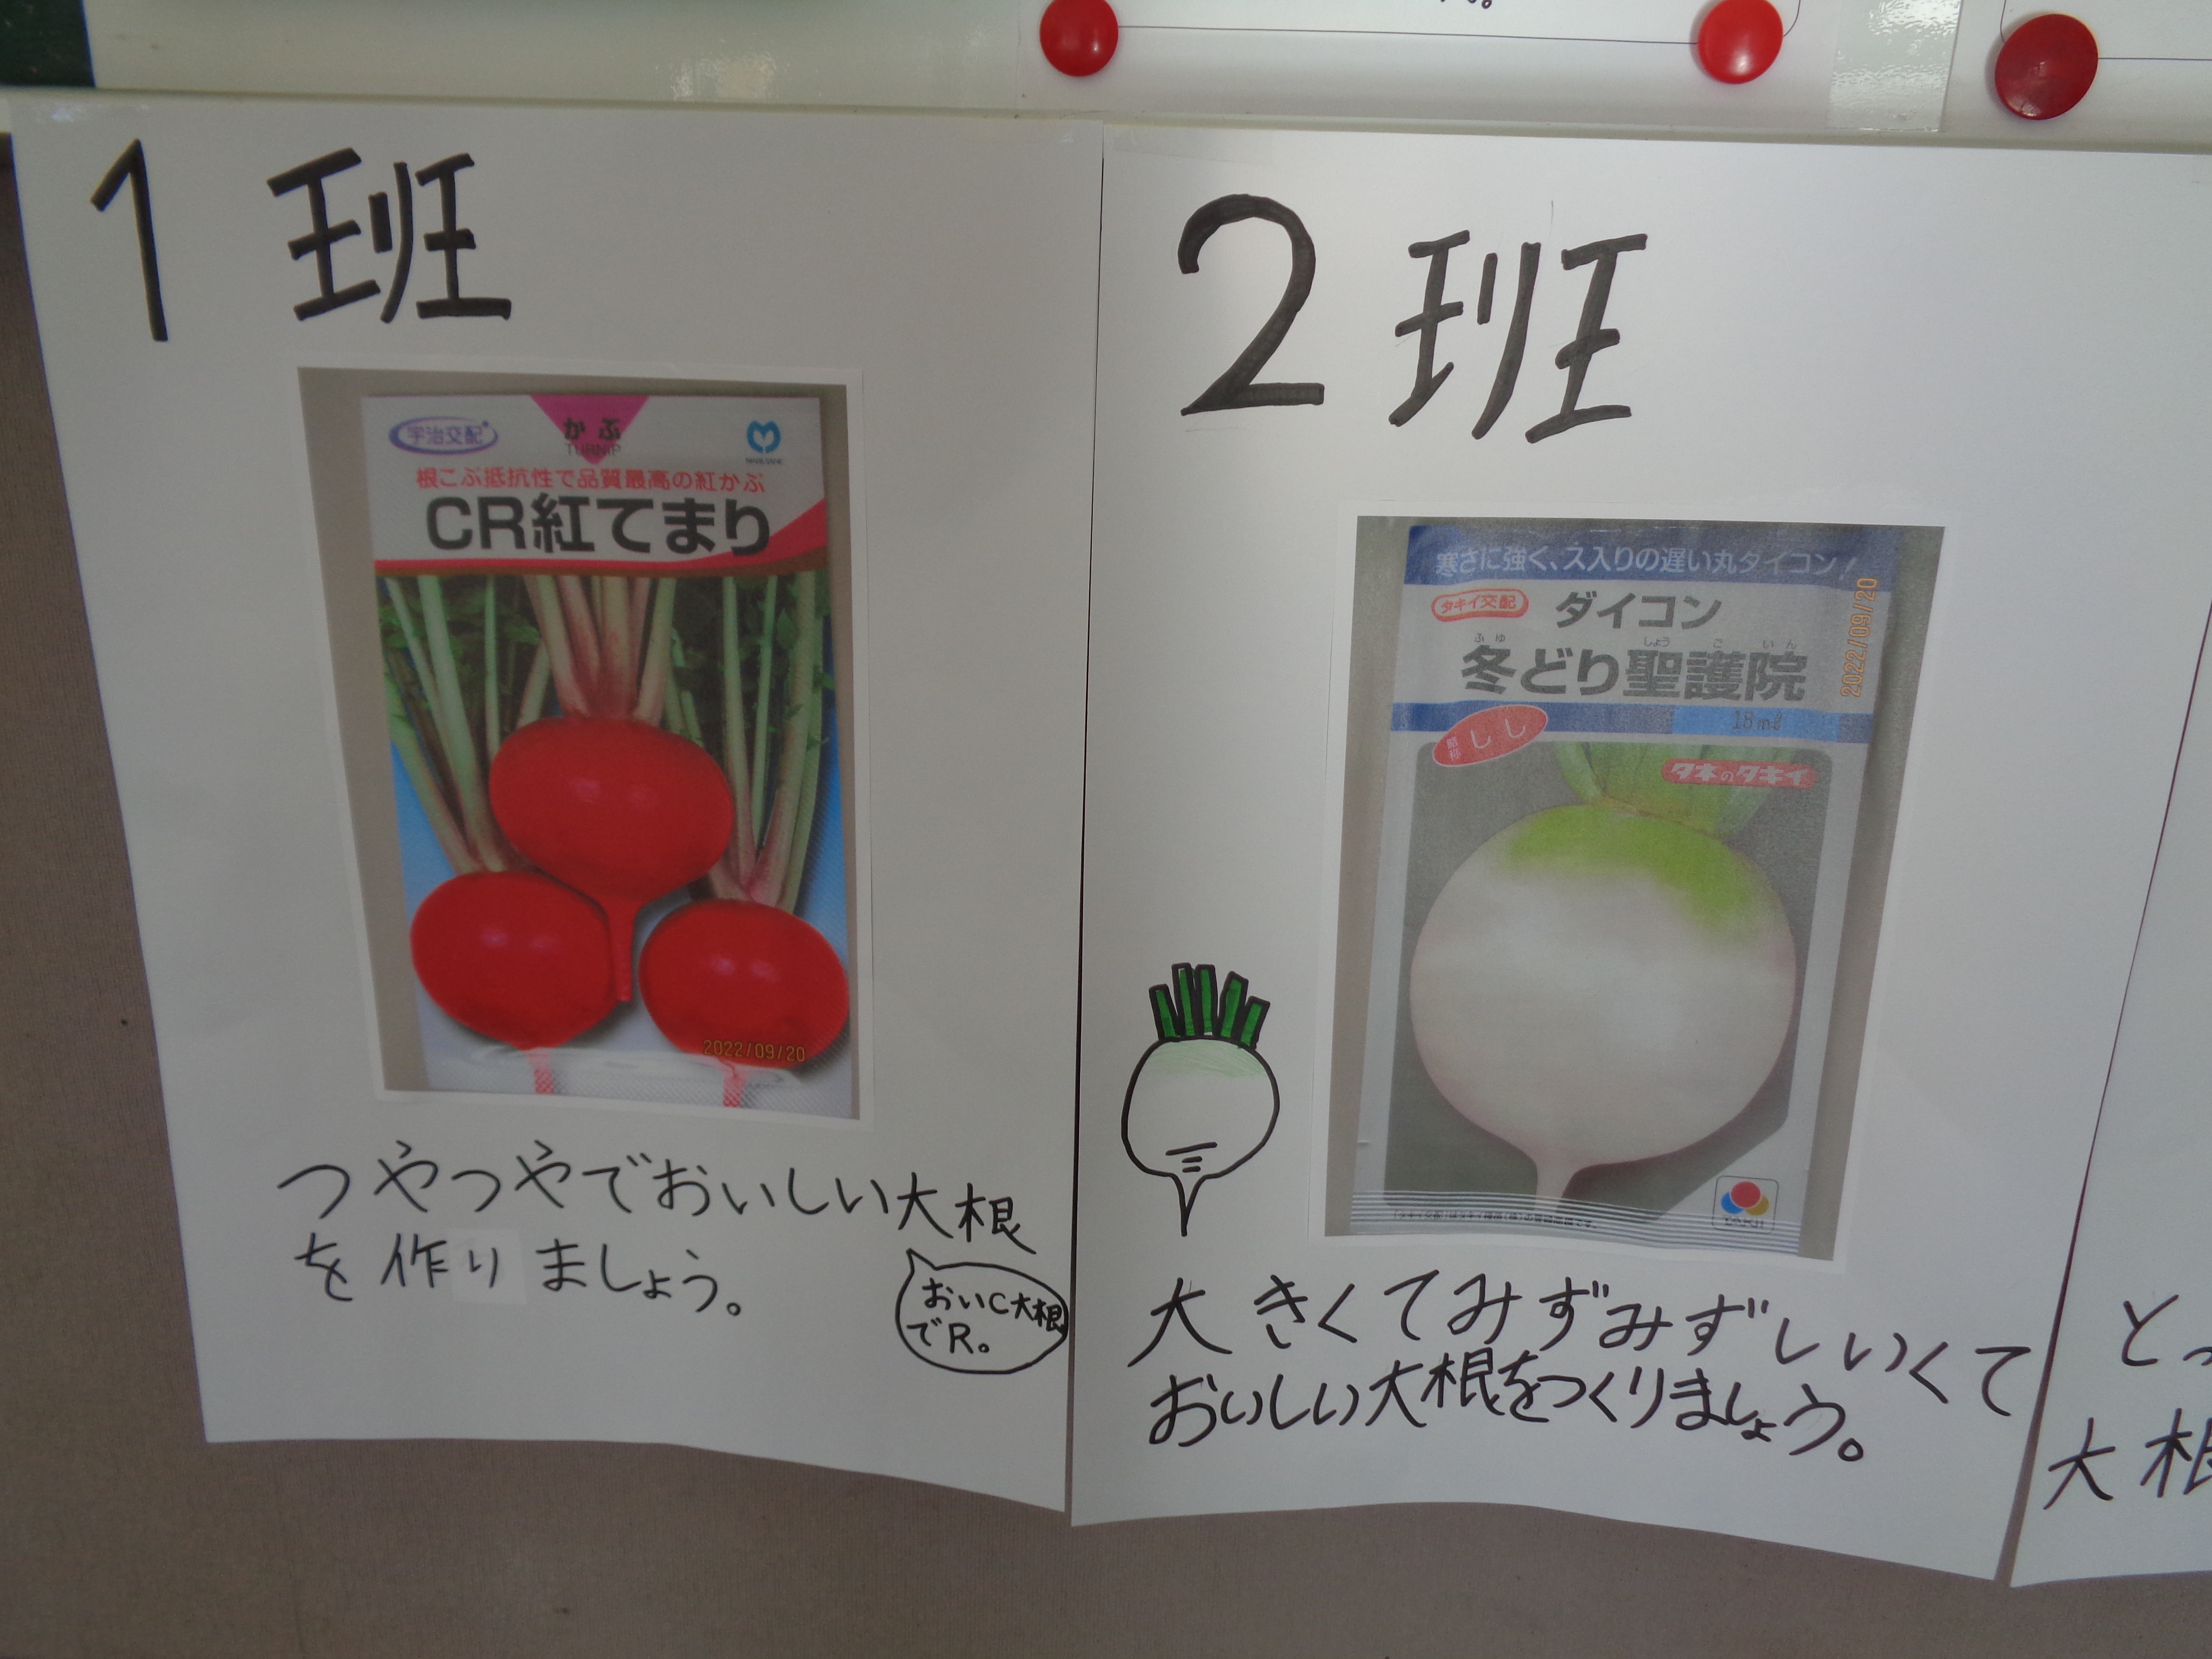 1 班
宇治交配
かぶ
TURNIP
根こぶ抵抗性で品質最高の紅かぶ
CR紅てまり
2022/09/20
つやつやでおいしい大根
を作りましょう。
おいC大根
でR。
2 班
寒さに強く、ス入りの遅い丸ダイコン!
タキイ交配
ダイコン
ふゆ しょうごいん
冬どり聖護院
2022/09/20
18ml
しし
タネのタキイ
TAKII
大きくてみずみずしいくて
おいしい大根をつくりましょう。
とっ
大根